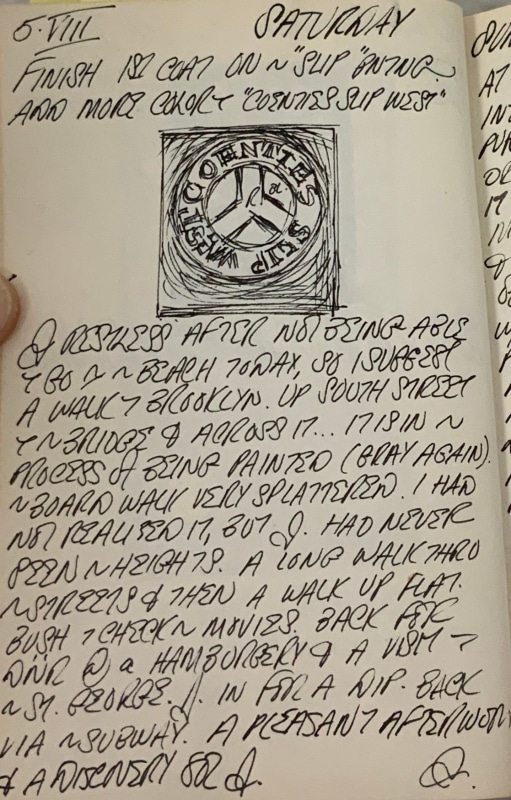 5·VIII SATURDAY
FINISH 1ST COAT ON ~ "SLIP" ~
ADD MORE COLOR "COENTIES SLIP WEST"
COENTIES SLIP WEST
J RESTLESS AFTER NOT BEING ABLE
GO ~ BEACH TODAY, SO I SUGGEST
A WALK BROOKLYN. UP SOUTH STREET
~ BRIDGE & ACROSS IT... IT IS IN ~
PROCESS OF BEING PAINTED (GRAY AGAIN).
~ BOARD WALK VERY SPLATTERED. I HAD
NOT REALISED IT, BUT J. HAD NEVER
SEEN ~ HEIGHTS. A LONG WALK THRO
~ STREETS & THEN A WALK UP FLAT.
BUSH CHECK ~ MOVIES. BACK FOR
DINR @ a HAMBURGERY & A VISIT
~ ST. GEORGE. J. IN FOR A DIP. BACK
VIA ~ SUBWAY. A PLEASANT AFTERNOON
& A DISCOVERY FOR J.
SUN
AT
INT
PUR
OR
IT